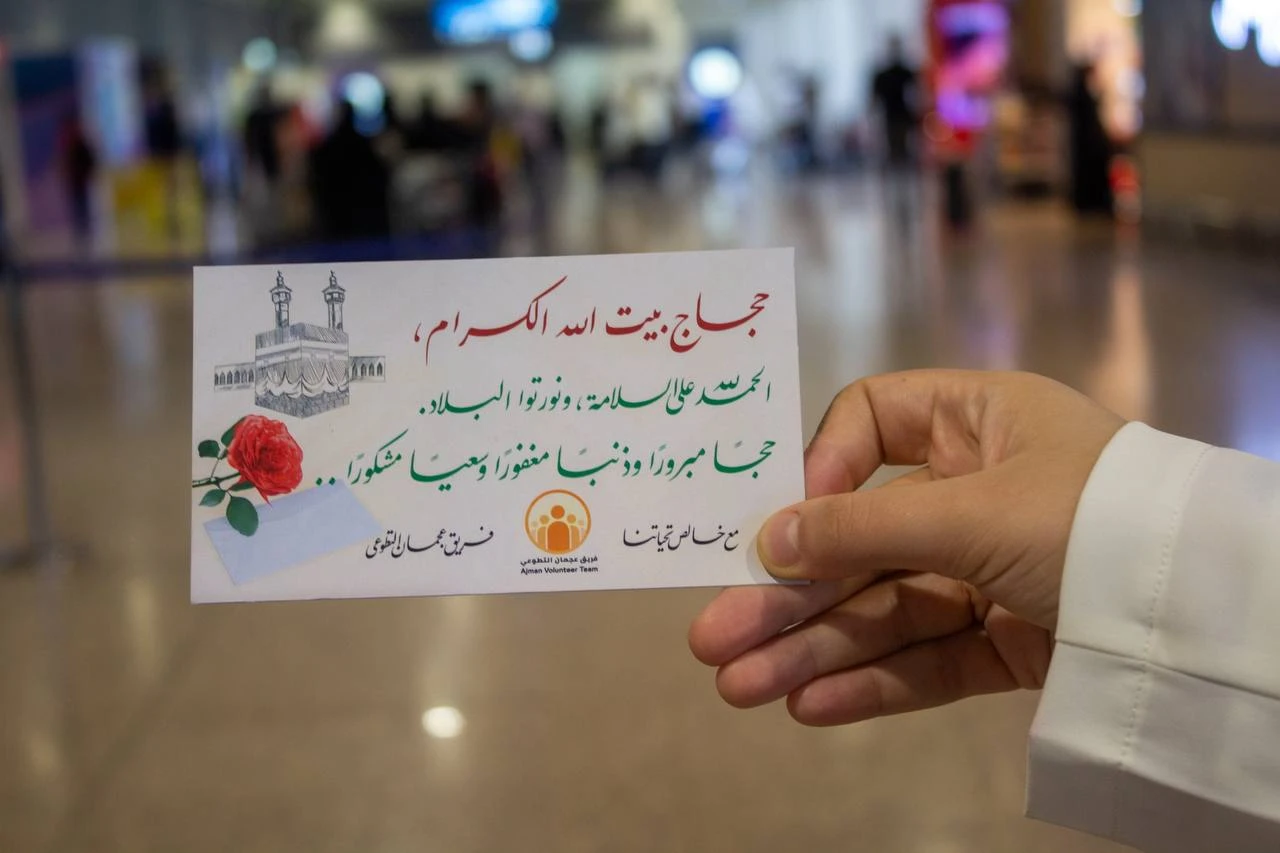 حجاج بيت الله الكرام،
الحمدلله على السلامة، ونورتوا البلاد.
حجًا مبرورًا وذنبًا مغفورًا وسعيًا مشكورًا..
مع خالص تحياتنا
فريق عجمان التطوعي
Ajman Volunteer Team
فريق عجمان التطوعي